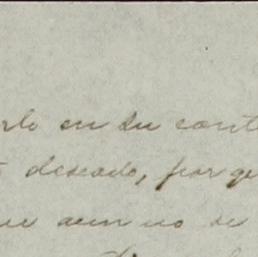 rlo en su cont
deseado, porqu
ue aun no se